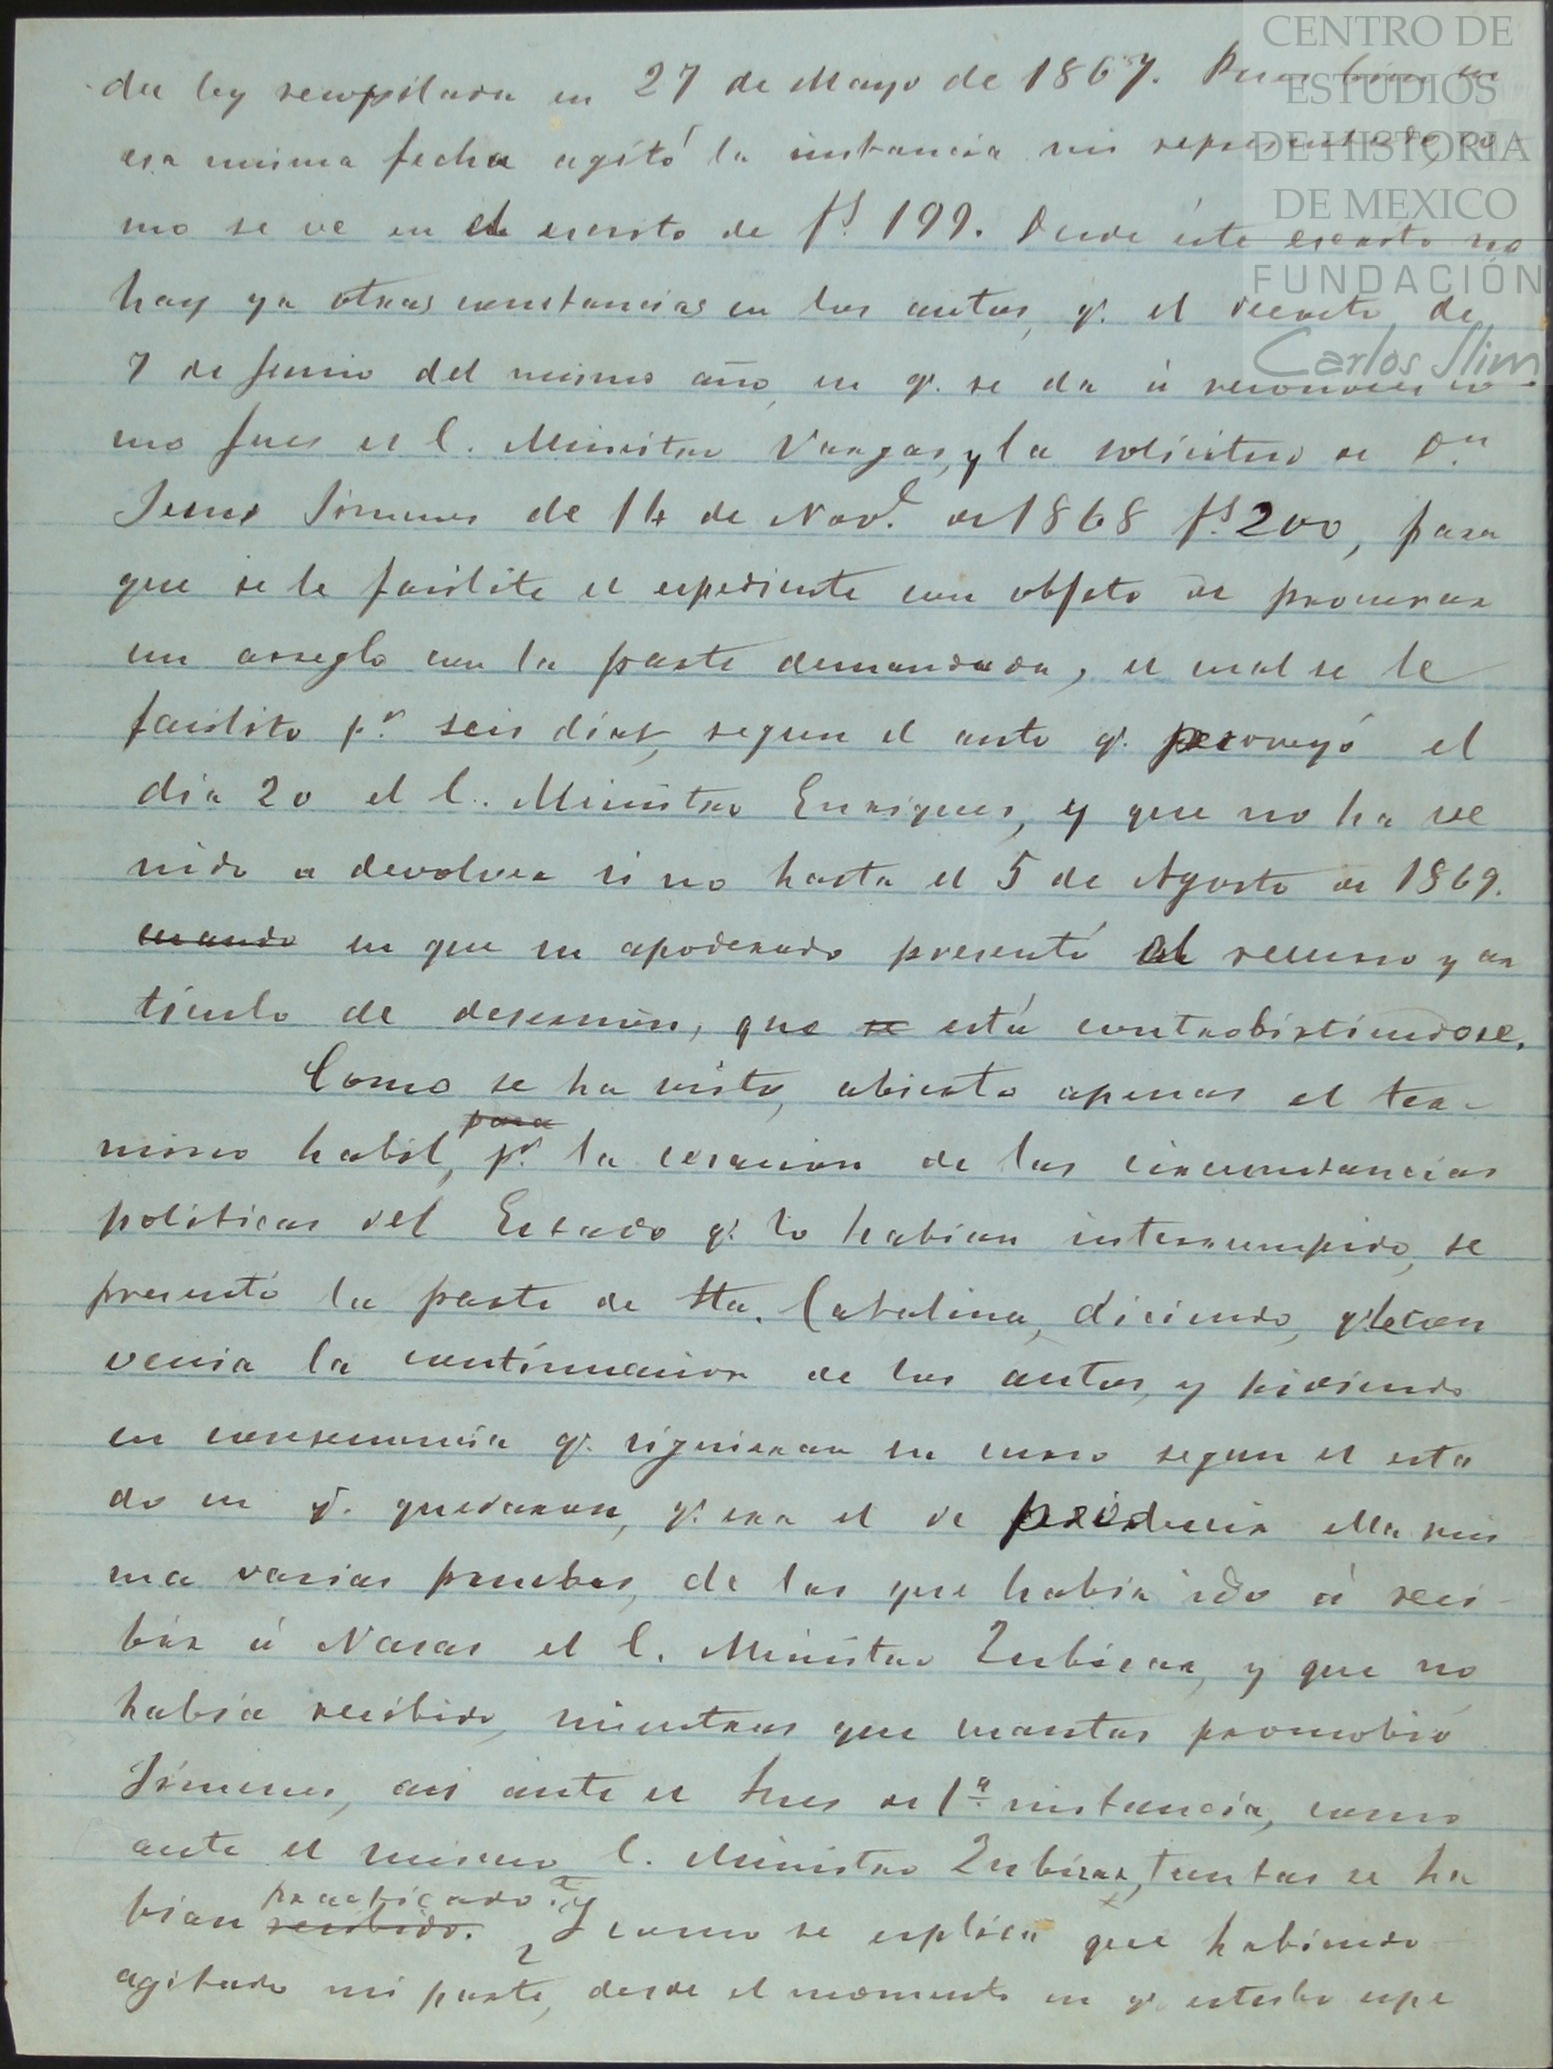 CENTRO DE
ESTUDIOS
DE HISTORIA
DE MEXICO
FUNDACIÓN
Carlos Slim
da ley recopilada en 27 de Mayo de 1867. Pues bien en
esa misma fecha agitó la instancia mi representado, co-
mo se ve en el escrito de fs. 199. Desde éste escrito no
hay ya otras constancias en los autos, q.e el decreto de
7 de Junio del mismo año, en q.e se da á reconocer co-
mo Juez el C. Ministro Vargas, y la solicitud de Dn.
Jesus Jimenes de 14 de Nove. de 1868 fs. 200, para
que se le facilite el espediente con objeto de procurar
un arreglo con la parte demandada, el cual se le
facilito pr. seis dias, segun el auto q.e proveyó el
dia 20 el C. Ministro Enriques, y que no ha ve
nido a devolver si no hasta el 5 de Agosto de 1869.
cuando en que su apoderado presentó el recurso y ar
ticulo de desercion, que se está controbirtiendose.
Como se ha visto, abierto apenas el ter-
mino habil, para pr. la cesacion de las circunstancias
politicas del Estado q.e lo habian interrumpido, se
presentó la parte de Sta. Catalina, diciendo, q.e le con
venia la continuacion de los autos, y pidiendo
en consecuencia q.e siguieran su curso segun el esta
do en q.e quedaron, q.e era el de producir ella mis
ma varias pruebas, de las que habia ido á reci-
bir á Nasas el C. Ministro Zubiria, y que no
habia recibido, mientras que cuantas promobió
Jimenes, asi ante el Jues de 1.a instancia, como
ante el mismo C. Ministro Zubiria, tantas se ha
bian recibido. practicado. ¿Y como se esplica que habiendo
agitado mi parte, desde el momento en q.e estubo espe